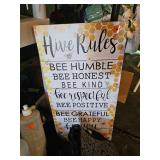 Hive Rules
BEE HUMBLE
BEE HONEST
BEE KIND
bee respectful
BEE POSITIVE
BEE GRATEFUL
BEE HAPPY